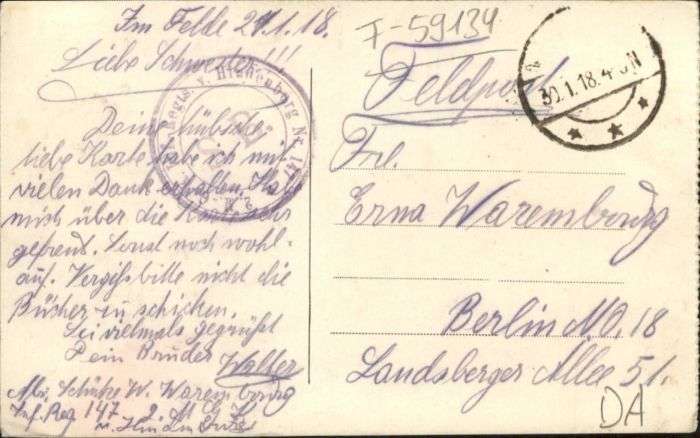 Im Felde 29.1.18.
Liebe Schwester!!!
Deine hübsche,
liebe Karte habe ich mit
vielen Dank erhalten. Habe
mich über die Karte sehr
gefreut. Sonst noch wohl-
auf. Vergiß bitte nicht die
Bücher zu schicken.
Sei vielmals gegrüßt
Dein Bruder
Walter
Abs. Schütze W. Warembourg
Inf. Reg 147 2. M.G.K.
Regts. v. Hindenburg Nr. 147
F-59134
30.1.18.4-5N
Feldpost
Frl.
Erna Warembourg
Berlin N.O. 18
Landsberger Allee 51.
DA